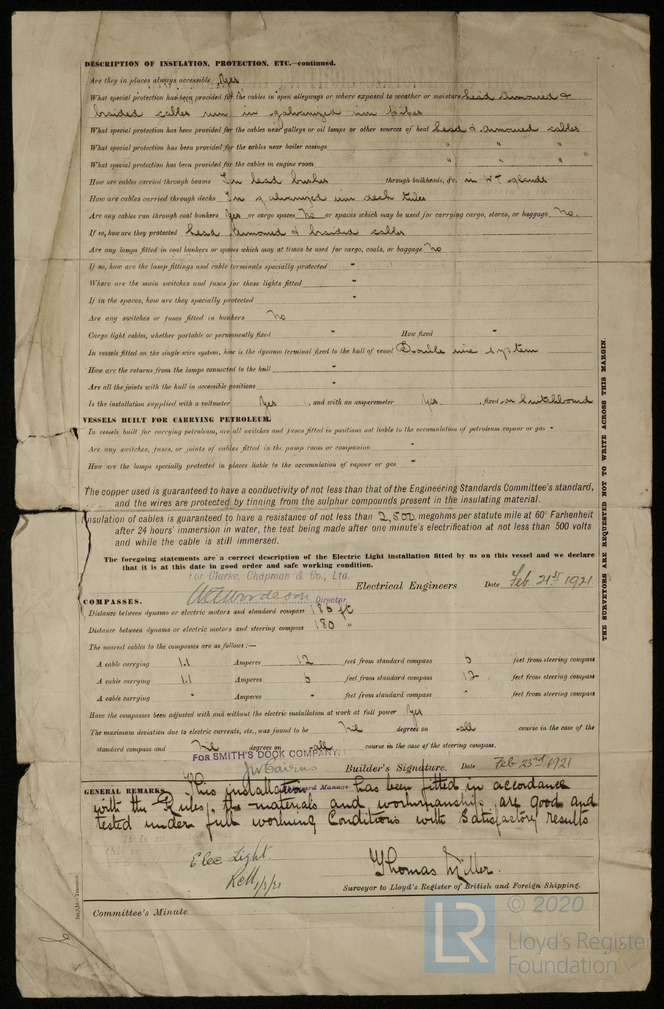 DESCRIPTION OF INSULATION, PROTECTION, ETC.—continued.
Are they in places always accessible Yes
What special protection has been provided for the cables in open alleyways or where exposed to weather or moisture Lead Armoured &
braided cables run in galvanized iron pipes
What special protection has been provided for the cables near galleys or oil lamps or other sources of heat Lead & Armoured cables
What special protection has been provided for the cables near boiler casings " " "
What special protection has been provided for the cables in engine room " " "
How are cables carried through beams In lead bushes through bulkheads, &c. in W T glands
How are cables carried through decks In galvanized iron deck tubes
Are any cables run through coal bunkers Yes or cargo spaces No or spaces which may be used for carrying cargo, stores, or baggage No.
If so, how are they protected Lead Armoured & braided cables
Are any lamps fitted in coal bunkers or spaces which may at times be used for cargo, coals, or baggage No
If so, how are the lamp fittings and cable terminals specially protected "
Where are the main switches and fuses for these lights fitted "
If in the spaces, how are they specially protected "
Are any switches or fuses fitted in bunkers No
Cargo light cables, whether portable or permanently fixed " How fixed "
In vessels fitted on the single wire system, how is the dynamo terminal fixed to the hull of vessel Double wire system
How are the returns from the lamps connected to the hull "
Are all the joints with the hull in accessible positions "
Is the installation supplied with a voltmeter Yes , and with an amperemeter Yes , fixed on Switchboard
VESSELS BUILT FOR CARRYING PETROLEUM.
In vessels built for carrying petroleum, are all switches and fuses fitted in positions not liable to the accumulation of petroleum vapour or gas "
Are any switches, fuses, or joints of cables fitted in the pump room or companion "
How are the lamps specially protected in places liable to the accumulation of vapour or gas "
The copper used is guaranteed to have a conductivity of not less than that of the Engineering Standards Committee's standard,
and the wires are protected by tinning from the sulphur compounds present in the insulating material.
Insulation of cables is guaranteed to have a resistance of not less than 2,500 megohms per statute mile at 60° Farhenheit
after 24 hours' immersion in water, the test being made after one minute's electrification at not less than 500 volts
and while the cable is still immersed.
The foregoing statements are a correct description of the Electric Light installation fitted by us on this vessel and we declare
that it is at this date in good order and safe working condition.
For Clarke, Chapman & Co., Ltd.
Woodeson Director Electrical Engineers Date Feb 21st 1921
COMPASSES.
Distance between dynamo or electric motors and standard compass 186 ft
Distance between dynamo or electric motors and steering compass 180 "
The nearest cables to the compasses are as follows:—
A cable carrying 1.1 Amperes 12 feet from standard compass feet from steering compass
A cable carrying 1.1 Amperes feet from standard compass 12 feet from steering compass
A cable carrying " Amperes " feet from standard compass " feet from steering compass
Have the compasses been adjusted with and without the electric installation at work at full power Yes
The maximum deviation due to electric currents, etc., was found to be Nil degrees on all course in the case of the
standard compass and Nil degrees on all course in the case of the steering compass.
FOR SMITH'S DOCK COMPANY,
J W Cairns Builder's Signature. Date Feb 23rd 1921
GENERAL REMARKS.
This installation has been fitted in accordance
with the Rules, the materials and workmanship are good and
tested under full working Conditions with Satisfactory results
Elec Light
Thomas Miller.
Surveyor to Lloyd's Register of British and Foreign Shipping.
Committee's Minute
THE SURVEYORS ARE REQUESTED NOT TO WRITE ACROSS THIS MARGIN.
LR
© 2020
Lloyd's Register
Foundation